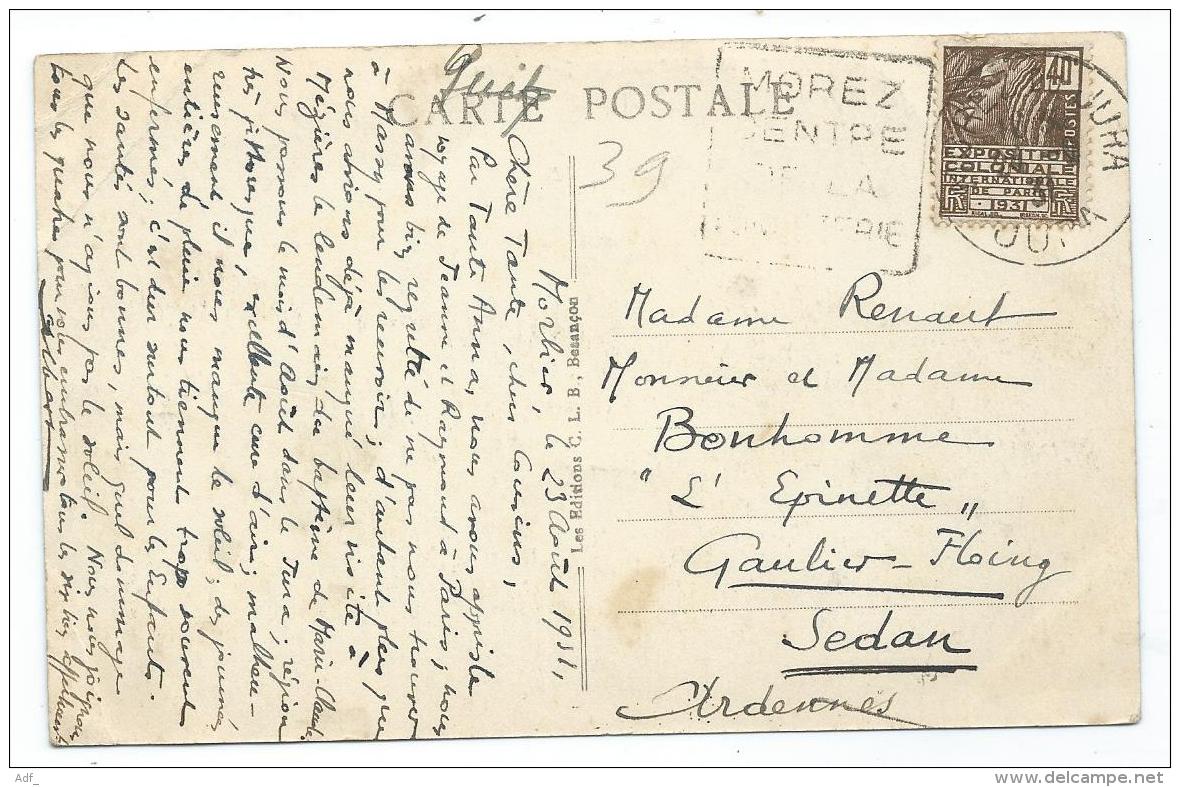 Quit
CARTE POSTALE
39
MOREZ
CENTRE
DE LA
JURA
40c
POSTES
EXPOSITION
COLONIALE
INTERNATIONALE
DE PARIS
1931
JURA
Morbier, le 23 Août 1931,
Chère Tante, chers Cousins,
Par Tante Anna, nous avons appris le
voyage de Jeanne et Raymond à Paris ; nous
avons bien regretté de ne pas nous trouver
à Massy pour les recevoir ; d'autant plus que
nous avions déjà manqué leur visite à
Mézières le lendemain du baptême de Marie-Claude.
Nous passons le mois d'Août dans le Jura ; région
très pittoresque, excellente cure d'air ; malheu-
reusement il nous manque le soleil ; des journées
entières de pluie nous tiennent trop souvent
enfermés ; c'est dur surtout pour les Enfants.
Les santés sont bonnes, mais quel dommage
que nous n'ayions pas le soleil. Nous nous joignons
tous les quatre pour vous embrasser tous les six bien affectueusement
Albert
Les Editions C. L. B., Besançon
Madame Renault
Monsieur et Madame
Bonhomme
"L'Epinette"
Gaulier-Floing
Sedan
Ardennes
Adf_
delcampe.net